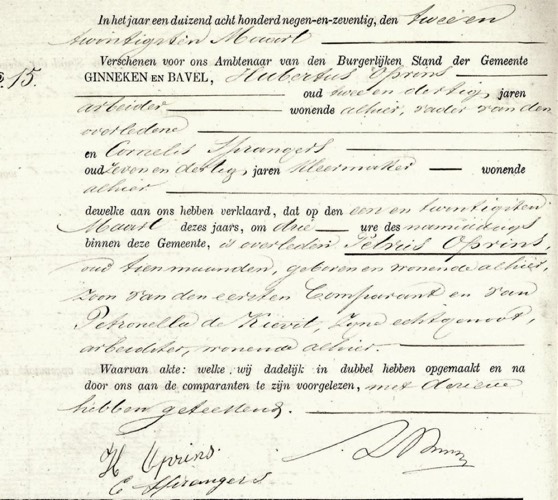 In het jaar een duizend acht honderd negen-en-zeventig, den twee en
twintigsten Maart
Verschenen voor ons Ambtenaar van den Burgerlijken Stand der Gemeente
15. GINNEKEN EN BAVEL, Hubertus Oprins
oud twee en dertig jaren
arbeider wonende alhier, vader van den
overledene
en Cornelis Sprangers
oud zeven en dertig, jaren kleermaker wonende
alhier
dewelke aan ons hebben verklaard, dat op den een en twintigsten
Maart dezes jaars, om drie ure des namiddags
binnen deze Gemeente, is overleden Petrus Oprins
oud tien maanden, geboren en wonende alhier,
zoon van den eersten Comparant en van
Petronella de Kievit, zyne echtgenoot,
arbeidster, wonende alhier.
Waarvan akte: welke wij dadelijk in dubbel hebben opgemaakt en na
door ons aan de comparanten te zijn voorgelezen, met dezelve
hebben geteekend.
H Oprins.
C Sprangers